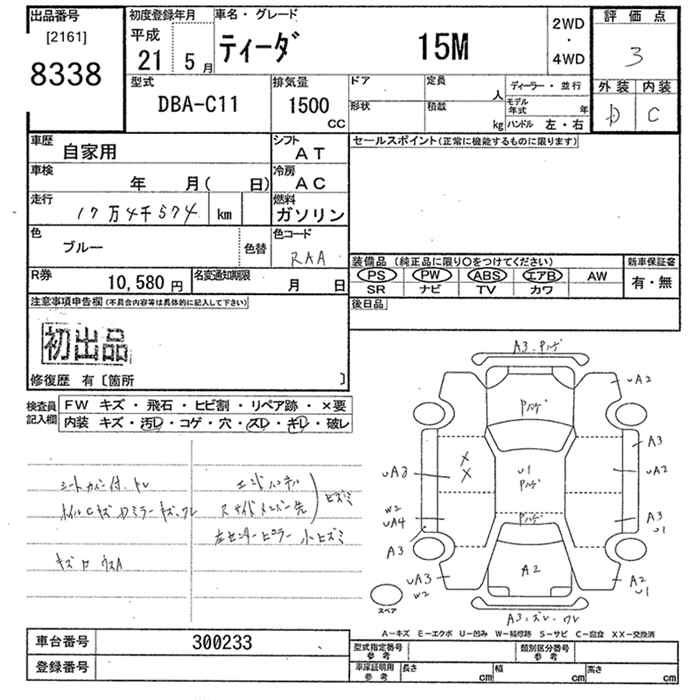 出品番号
[2161]
8338
初度登録年月
平成
21 5月
車名・グレード
ティーダ 15M
2WD
・
4WD
評価点
3
外装 内装
D C
型式
DBA-C11
排気量
1500
CC
ドア
形状
定員
人
積載
kg
ディーラー・並行
モデル年式 年
ハンドル 左・右
車歴
自家用
シフト
AT
セールスポイント(正常に機能するものに限ります)
車検
年 月( 日)
冷房
AC
走行
17万4千574 km
燃料
ガソリン
色
ブルー
色替
色コード
RAA
装備品(純正品に限り○をつけてください)
PS PW ABS エアB AW
SR ナビ TV カワ
新車保証書
有・無
R券
10,580円
名変通知期限
月 日
後日品
注意事項申告欄(不具合内容等は具体的に記入して下さい)
初出品
修復歴 有〔箇所 〕
検査員記入欄
FW キズ・飛石・ヒビ割・リペア跡・×要
内装 キズ・汚レ・コゲ・穴・スレ・キレ・破レ
シートカバー付、トレ
ホイルCキズ Dミラーキズ、ワレ
左センターピラー 小ヒズミ
ヒズミ
A3
UA2
A3
UA2
A3
U1
A2
U1
UA3
W2
UA4
A3
UA3
W2
U1
A2
X
X
スペア
A3・ズレ・ワレ
A−キズ E−エクボ U−凹み W−補修跡 S−サビ C−腐食 XX−交換済
車台番号
300233
登録番号
型式指定番号
参考
類別区分番号
参考
車庫証明用
参考
長さ cm
幅 cm
高さ cm